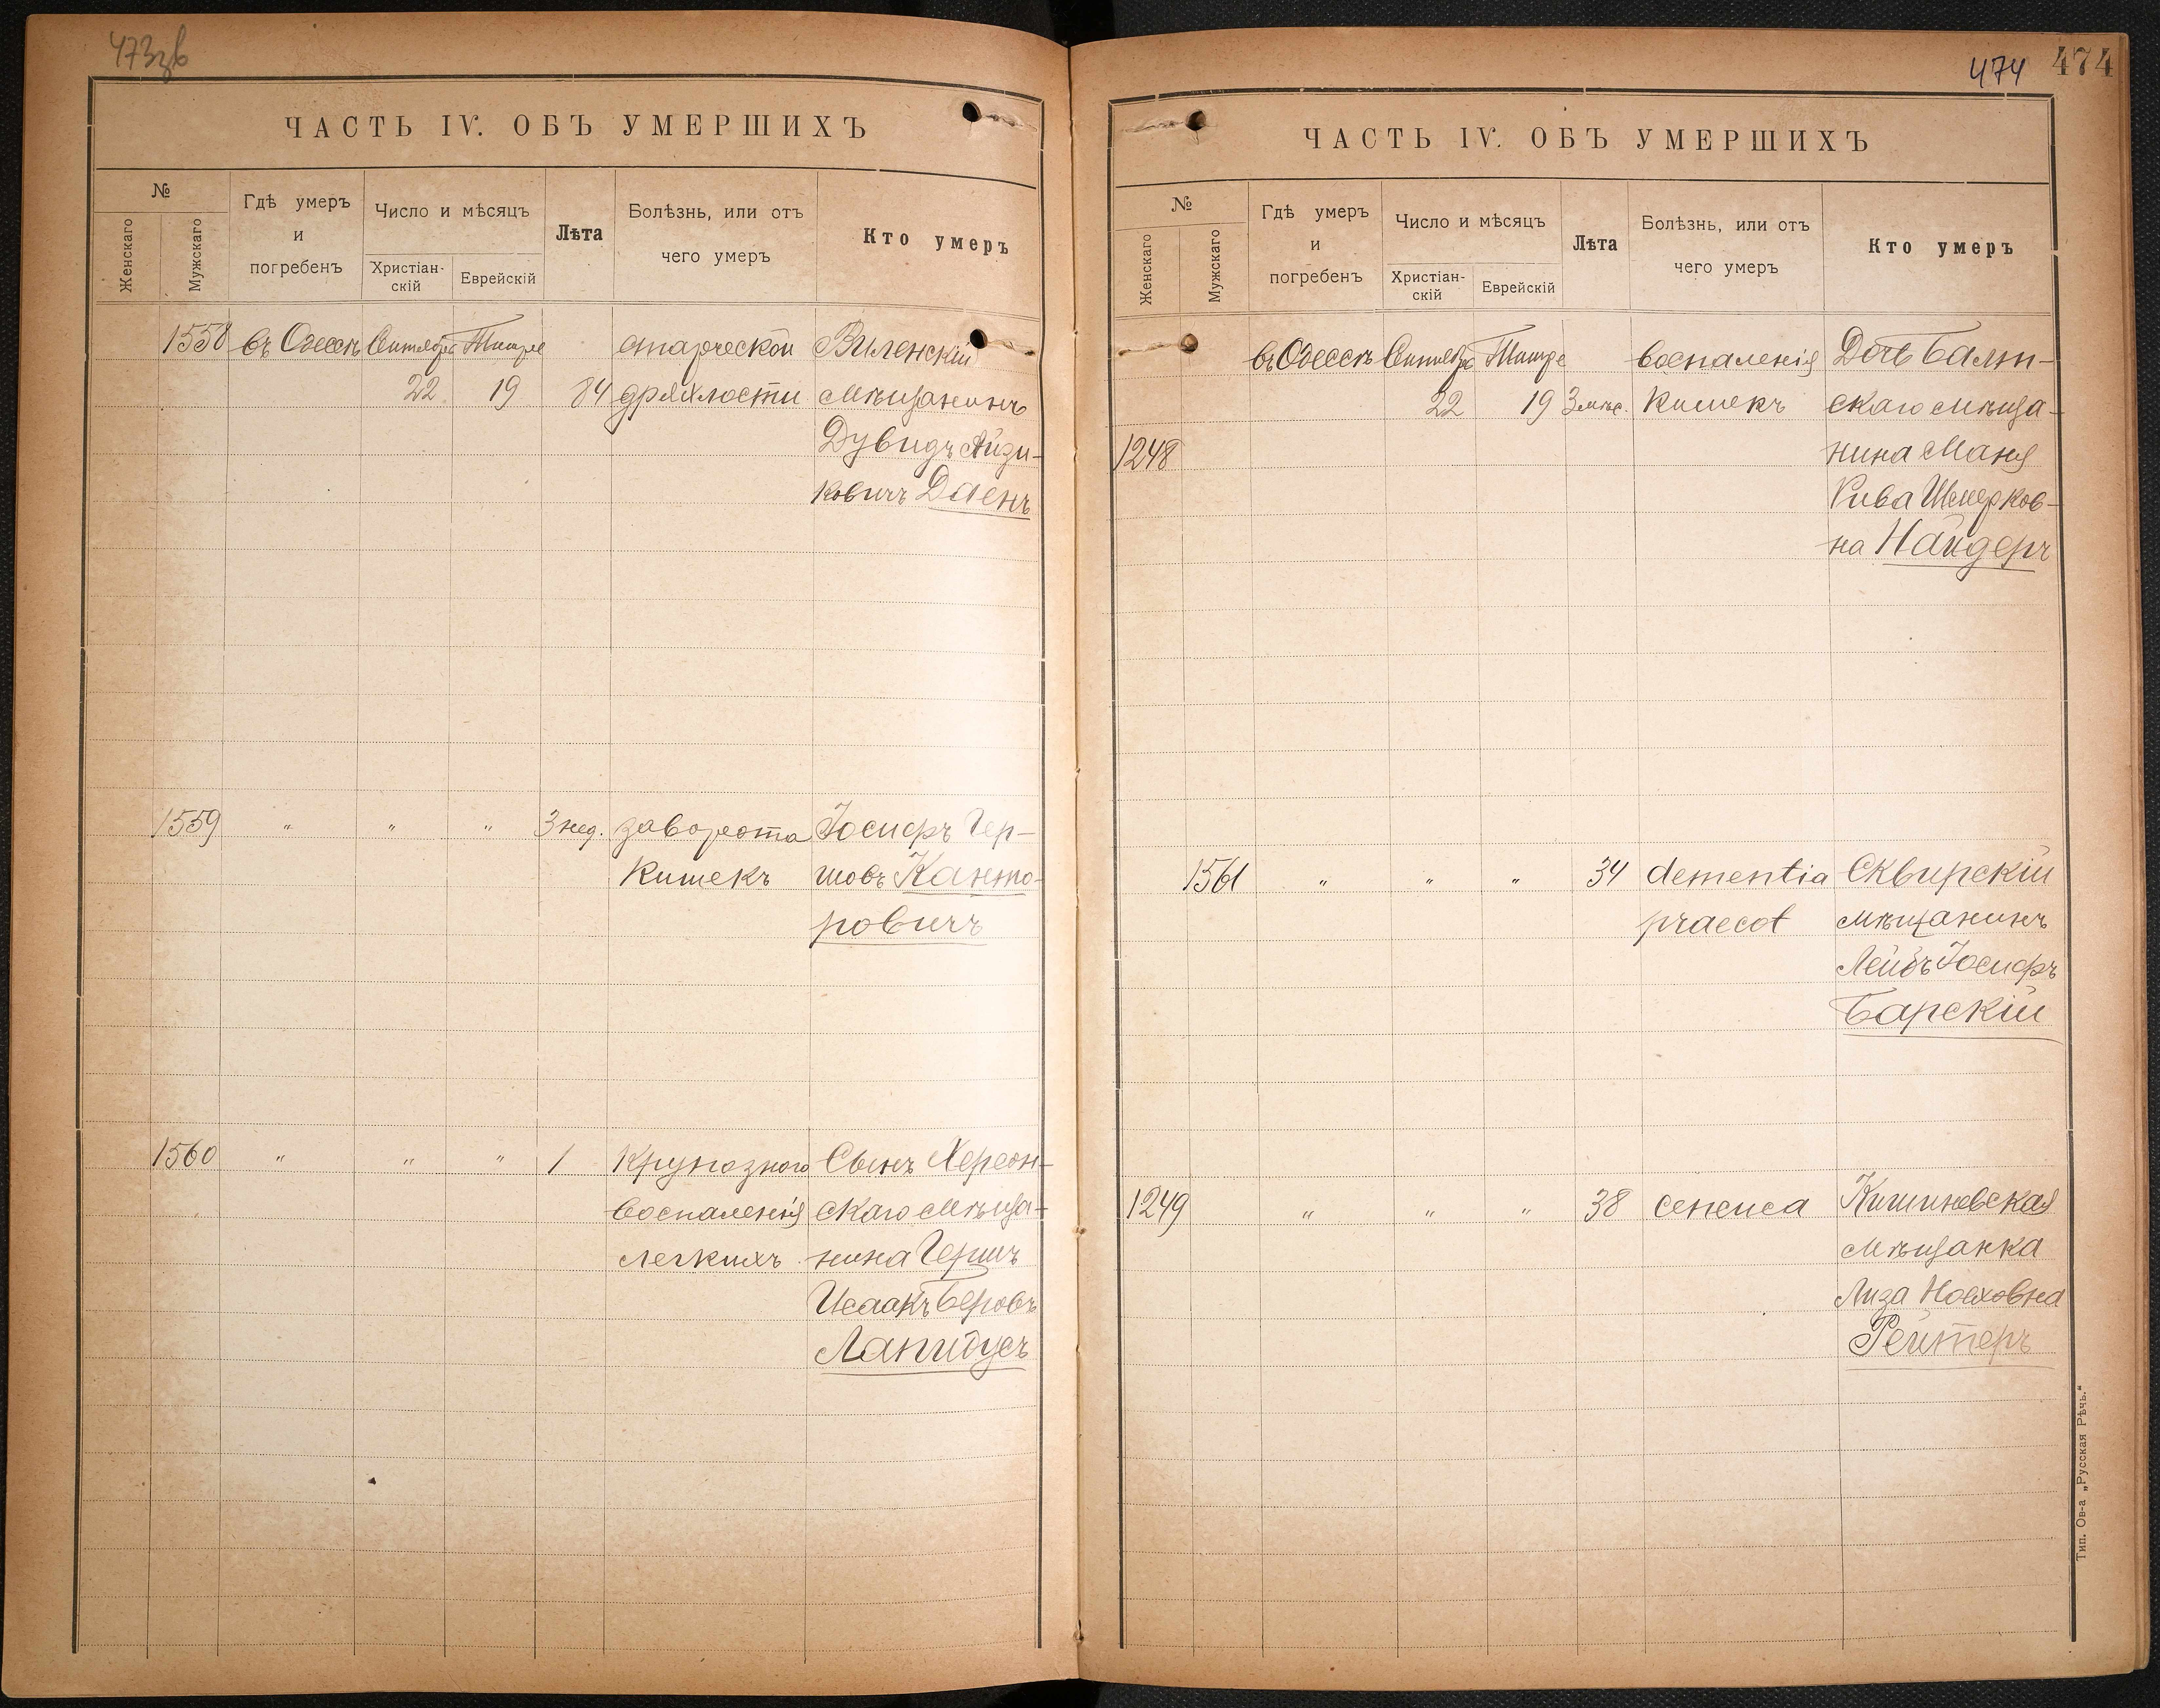 473зв
ЧАСТЬ IV. ОБЪ УМЕРШИХЪ
№
Женскаго
Мужскаго
Гдѣ умеръ
и
погребенъ
Число и мѣсяцъ
Христіан-
скій
Еврейскій
Лѣта
Болѣзнь, или отъ
чего умеръ
Кто умеръ
1558 въ Одессѣ Сентября Тишре старческой Виленскій
22 19 84 дряхлости мѣщанинъ
Дувидъ Айзи-
ковичъ Даенъ
1559 " " " 3 нед. заворота Іосифъ Гер-
кишекъ шовъ Канто-
ровичъ
1560 " " " 1 Крупознаго Сынъ Херсон-
воспаленія скаго мѣща-
легкихъ нина Гершъ
Исаакъ Беровъ
Лапидусъ
474 474
ЧАСТЬ IV. ОБЪ УМЕРШИХЪ
№
Женскаго
Мужскаго
Гдѣ умеръ
и
погребенъ
Число и мѣсяцъ
Христіан-
скій
Еврейскій
Лѣта
Болѣзнь, или отъ
чего умеръ
Кто умеръ
въ Одессѣ Сентября Тишре воспаленія Дочь Балт-
22 19 3 мѣс. кишекъ скаго мѣща-
1248 нина Маня
Рива Шмерков-
на Найдеръ
1561 " " " 34 dementia Сквирскій
praecot мѣщанинъ
Лейбъ Іосифъ
Барскій
1249 " " " 38 сепсиса Кишиневская
мѣщанка
Лиза Ноеховна
Рейтеръ
Тип. Ов-а „Русская Рѣчь."